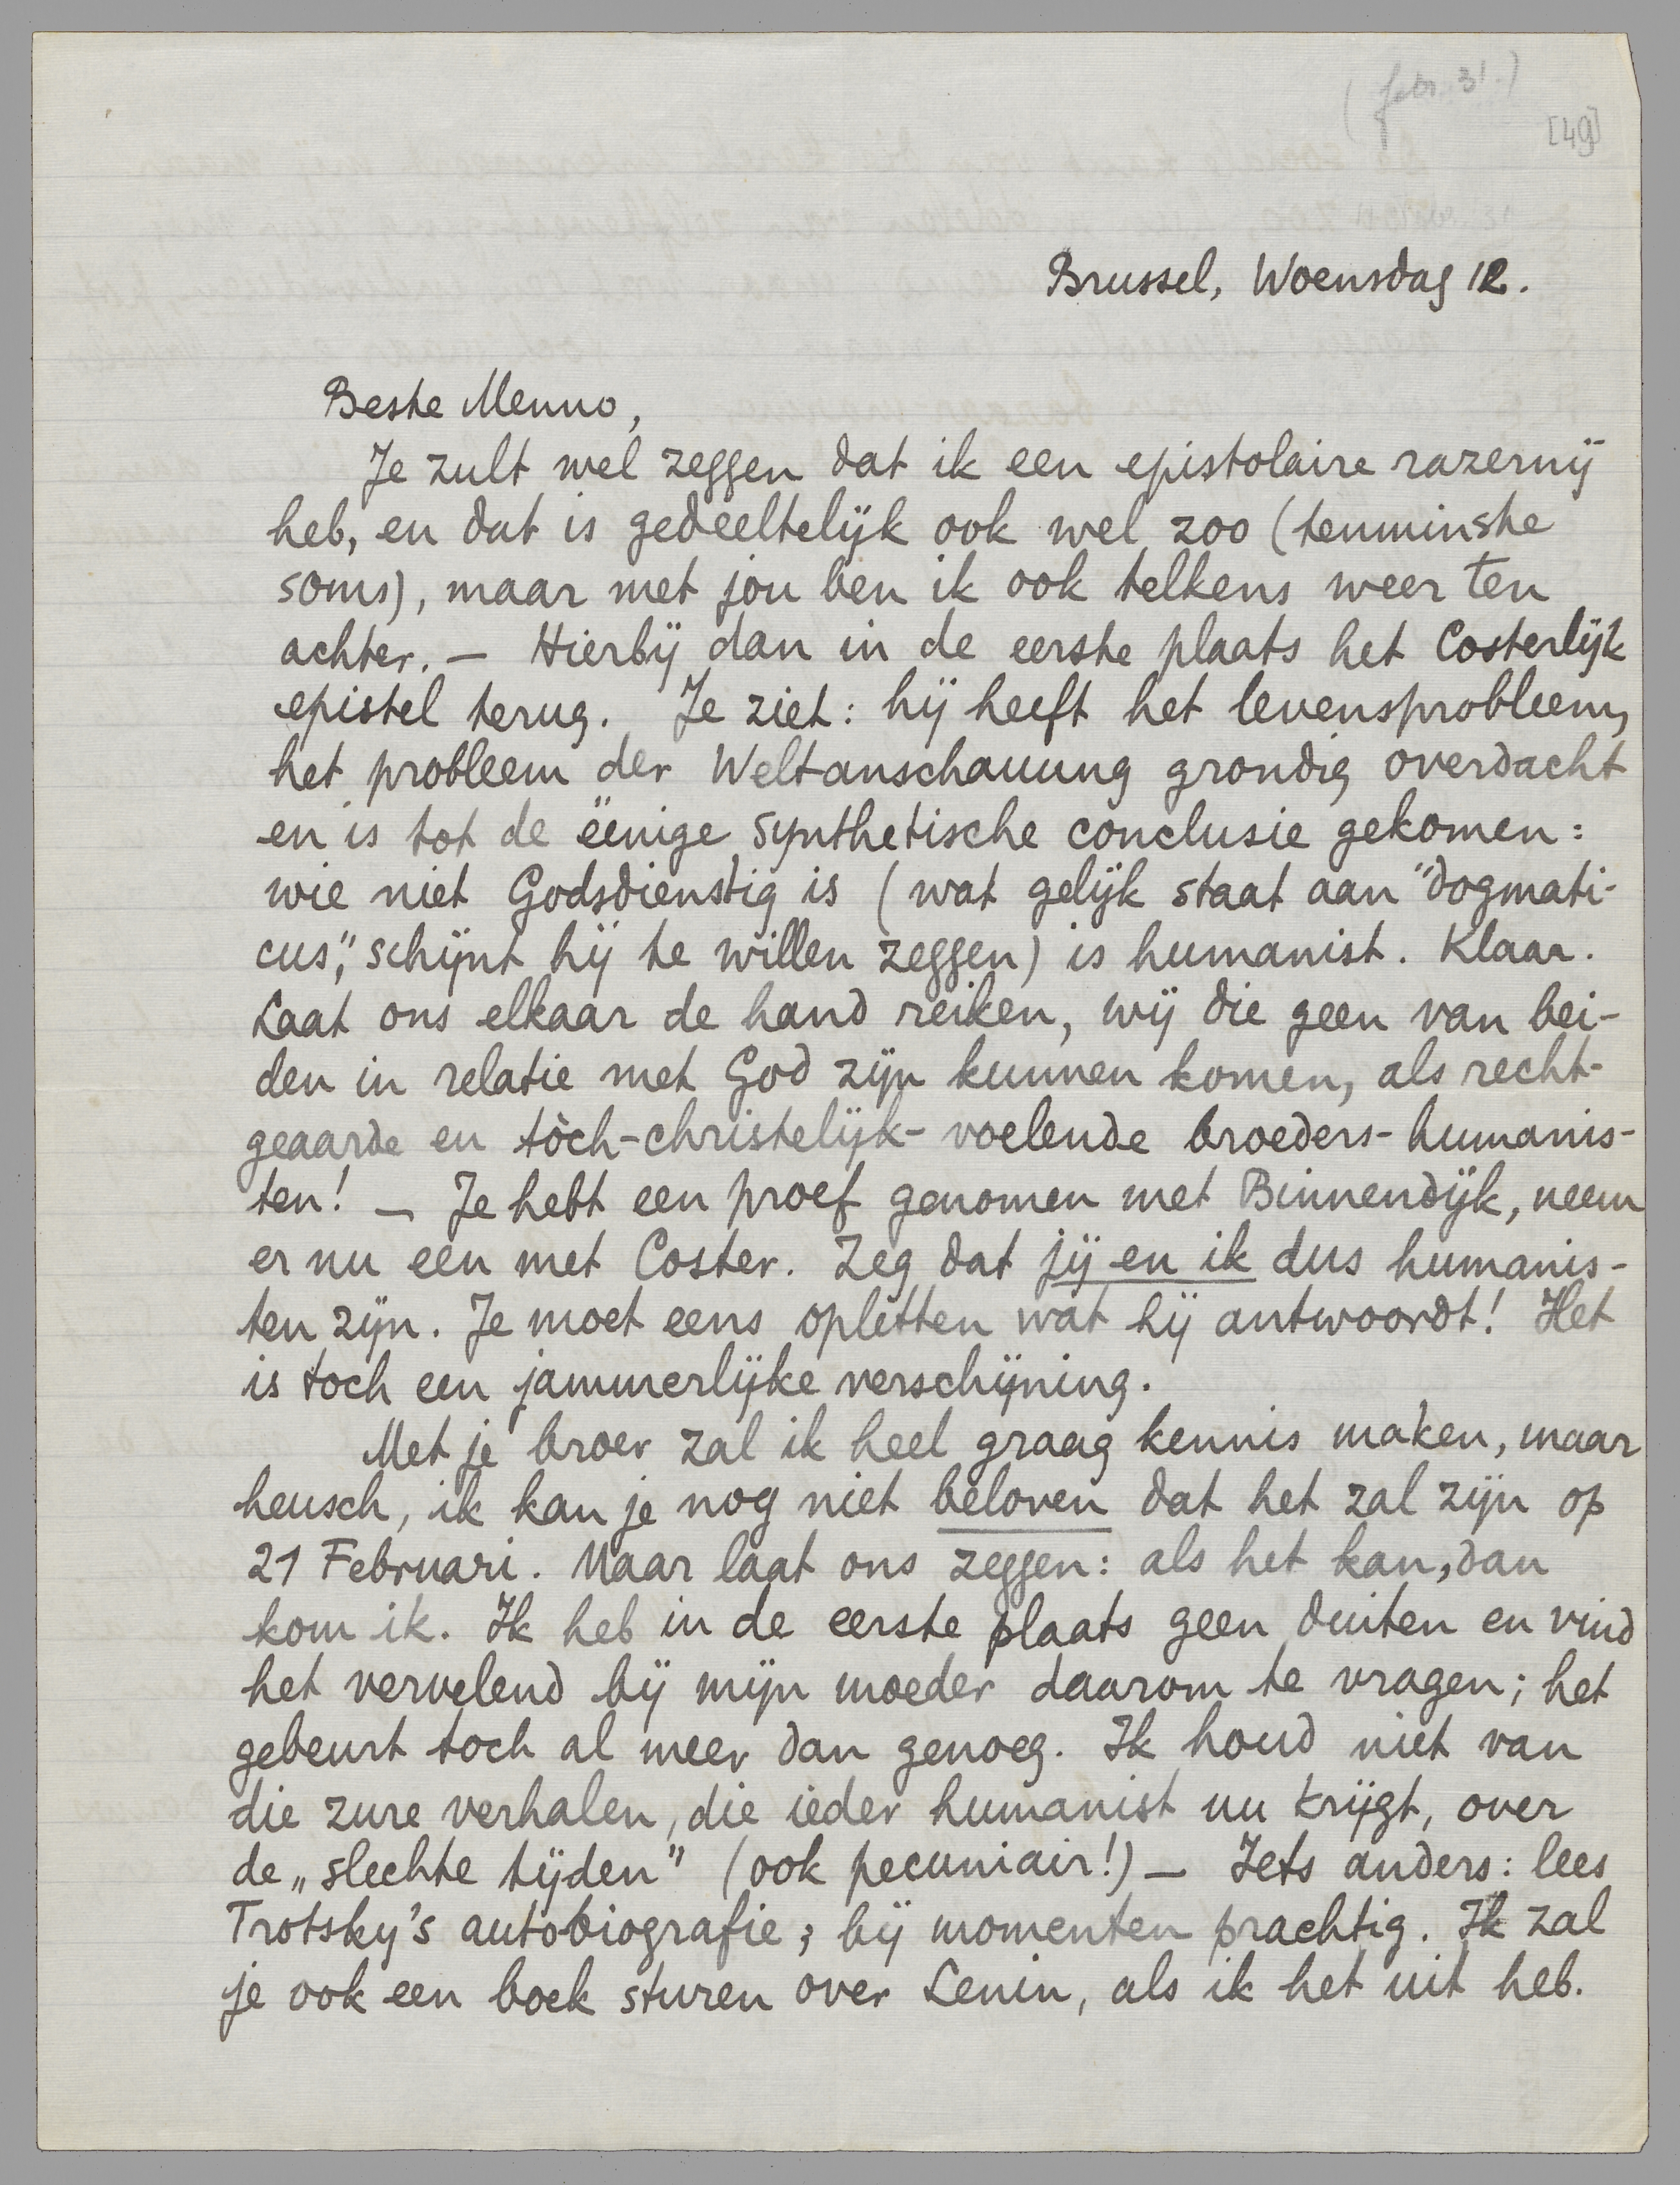 (febr. 31.)
[49]
Brussel, Woensdag 12.
Beste Menno,
Je zult wel zeggen dat ik een epistolaire razernij
heb, en dat is gedeeltelijk ook wel zoo (tenminste
soms), maar met jou ben ik ook telkens weer ten
achter. — Hierbij dan in de eerste plaats het Costerlijk
epistel terug. Je ziet: hij heeft het levensprobleem,
het probleem der Weltanschauung grondig overdacht
en is tot de ëenige synthetische conclusie gekomen:
wie niet Godsdienstig is (wat gelijk staat aan "dogmati-
cus", schijnt hij te willen zeggen) is humanist. Klaar.
Laat ons elkaar de hand reiken, wij die geen van bei-
den in relatie met God zijn kunnen komen, als recht-
geaarde en tòch-christelijk-voelende broeders-humanis-
ten! — Je hebt een proef genomen met Binnendijk, neem
er nu een met Coster. Zeg dat jij en ik dus humanis-
ten zijn. Je moet eens opletten wat hij antwoordt! Het
is toch een jammerlijke verschijning.
Met je broer zal ik heel graag kennis maken, maar
heusch, ik kan je nog niet beloven dat het zal zijn op
21 Februari. Maar laat ons zeggen: als het kan, dan
kom ik. Ik heb in de eerste plaats geen duiten en vind
het vervelend bij mijn moeder daarom te vragen; het
gebeurt toch al meer dan genoeg. Ik houd niet van
die zure verhalen, die ieder humanist nu krijgt, over
de „slechte tijden” (ook pecuniair!) — Iets anders: lees
Trotsky's autobiografie; bij momenten prachtig. Ik zal
je ook een boek sturen over Lenin, als ik het uit heb.